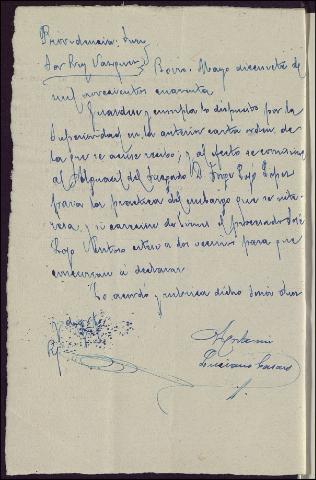 Providencia. Juez
Sor Rey Vazquez. Boiro. Mayo diecisiete de
mil novecientos cuarenta
Guardese y cumplase lo dispuesto por la
Superioridad en la anterior carta orden de
la que se acuse recibo; y al efecto se comisiona
al Alguacil del Juzgado D. Jorge Rojo Lopez
para la practica del embargo que se inte-
resa, y si careciere de bienes el procesado José
Rojo citese a dos vecinos para que
comparezcan a declarar.
Lo acordó y rubrica dicho Señor Juez
y
Antemi
Luciano